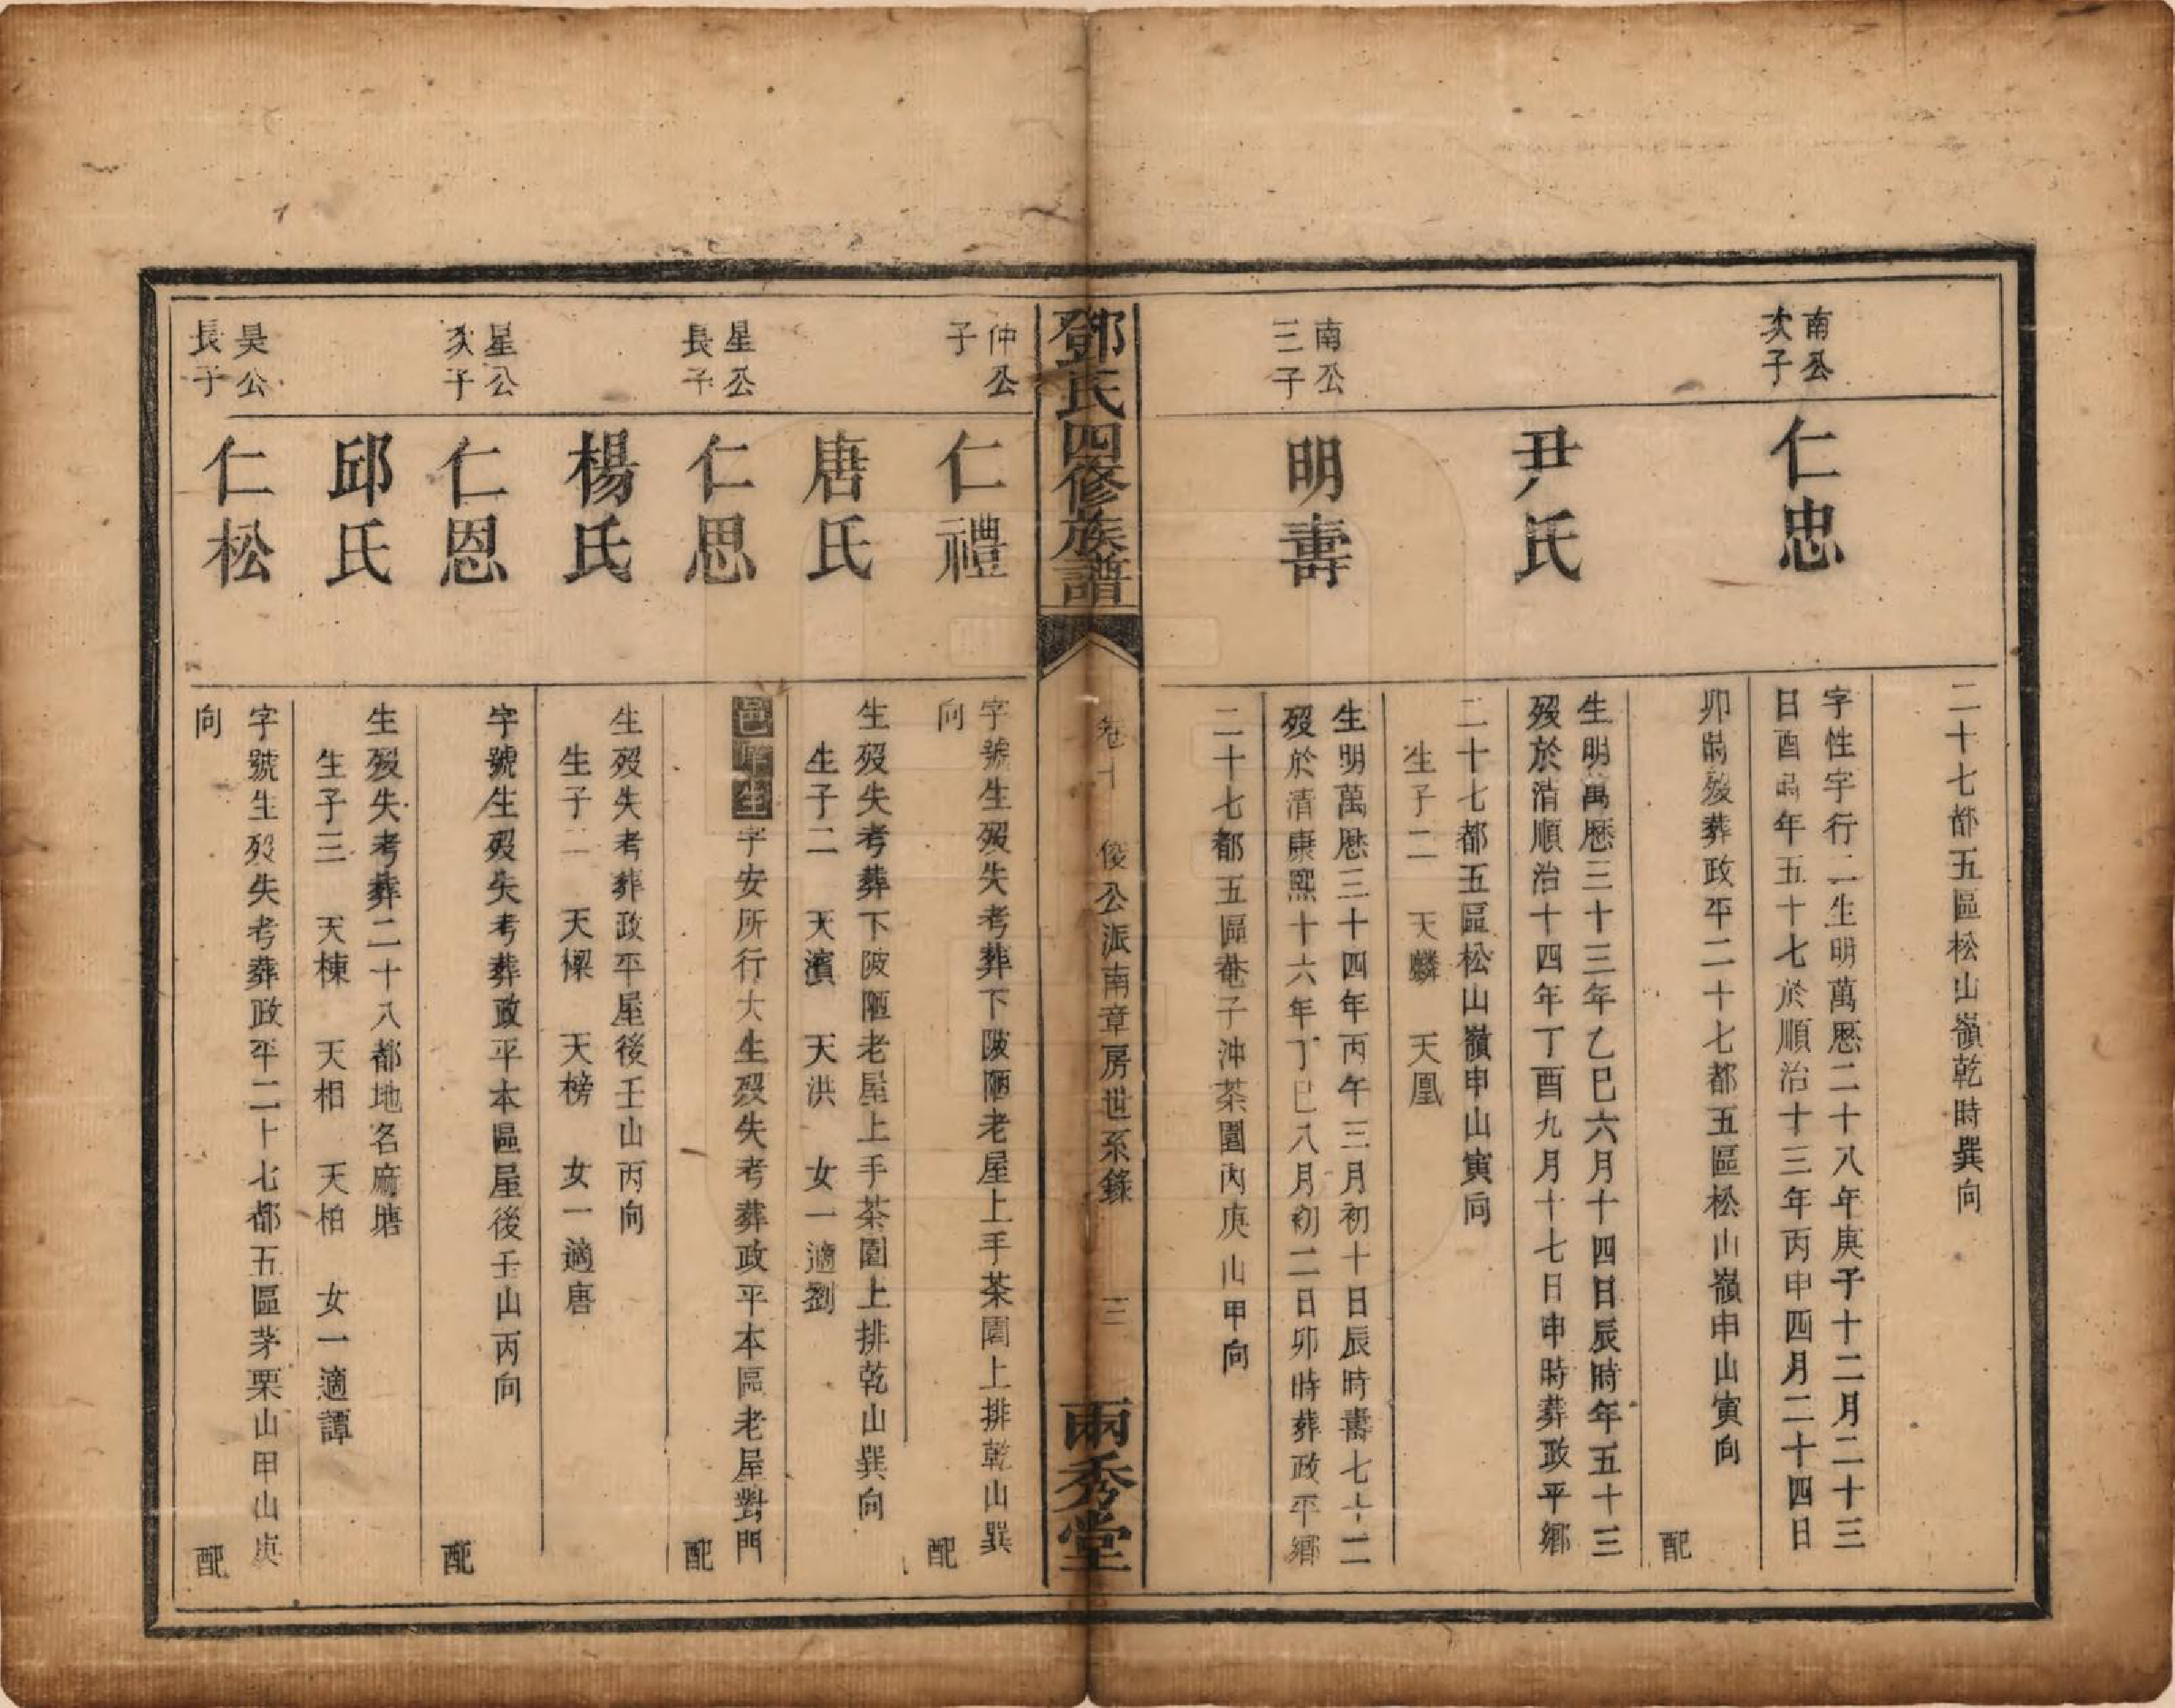 二十七都五區松山嶺乾時巽向
南公
次子
仁忠
字性宇行二生明萬厯二十八年庚子十二月二十三
日酉時年五十七於順治十三年丙申四月二十四日
卯時歿葬政平二十七都五區松山嶺申山寅向
配
尹氏
生明萬厯三十三年乙巳六月十四日辰時年五十三
歿於清順治十四年丁酉九月十七日申時葬政平鄉
二十七都五區松山嶺申山寅向
生子二 天麟 天凰
南公
三子
明壽
生明萬厯三十四年丙午三月初十日辰時壽七十二
歿於清康熙十六年丁巳八月初二日卯時葬政平鄉
二十七都五區菴子沖茶園內庚山甲向
鄧氏四修族譜
卷十 俊公派南章房世系錄 三
兩秀堂
仲公
子
仁禮
字號生歿失考葬下陂陋老屋上手茶園上排乾山巽
向
配
唐氏
生歿失考葬下陂陋老屋上手茶園上排乾山巽向
生子二 天濱 天洪 女一適劉
星公
長子
仁思
邑庠生字安所行大生歿失考葬政平本區老屋對門
配
楊氏
生歿失考葬政平屋後壬山丙向
生子二 天樑 天榜 女一適唐
星公
次子
仁恩
字號生歿失考葬政平本區屋後壬山丙向
配
邱氏
生歿失考葬二十八都地名麻塘
生子三 天棟 天相 天柏 女一適譚
昊公
長子
仁松
字號生歿失考葬政平二十七都五區茅栗山甲山庚
向
配